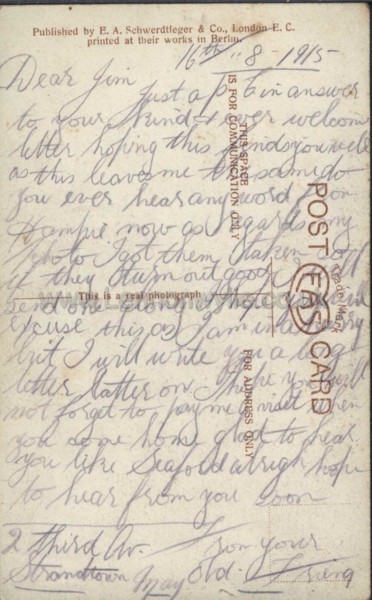 Published by E. A. Schwerdtfeger & Co., London E. C.
printed at their works in Berlin.
16th - 8 - 1915
Dear Jim
Just a p c in answer
to your kind & ever welcom
letter hoping this finds you well
as this leaves me the same do
you ever hear any word from
now as regards my
Photo I got them taken so
if they turn out good I
send one along I hope you will
excuse this as I am in a hurry
but I will write you a long
letter latter on I hope you will
not forget to pay me a visit when
you come home glad to hear
you like Seaford alright hope
to hear from you soon
2 third Av.
Strandtown
From your
old friend
May
THIS SPACE
IS FOR COMMUNICATION ONLY
This is a real photograph
FOR ADDRESS ONLY
POST CARD
EAS
Trade Mark